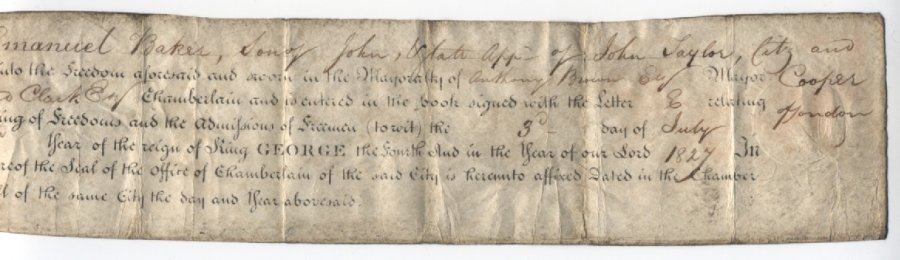 Emanuel Baker, Son of John, & late App: of John Taylor, City and Cooper of London
into the Freedom aforesaid and sworn in the Mayoralty of Anthony Brown Esq Mayor
Clark Esq Chamberlain and is entered in the book signed with the Letter E relating
ing of Freedoms and the Admissions of Freemen (to wit) the 3d day of July
Year of the reign of King GEORGE the Fourth And in the Year of our Lord 1827 In
reof the Seal of the Office of Chamberlain of the said City is hereunto affixed Dated in the Chamber
of the same City the day and Year abovesaid.